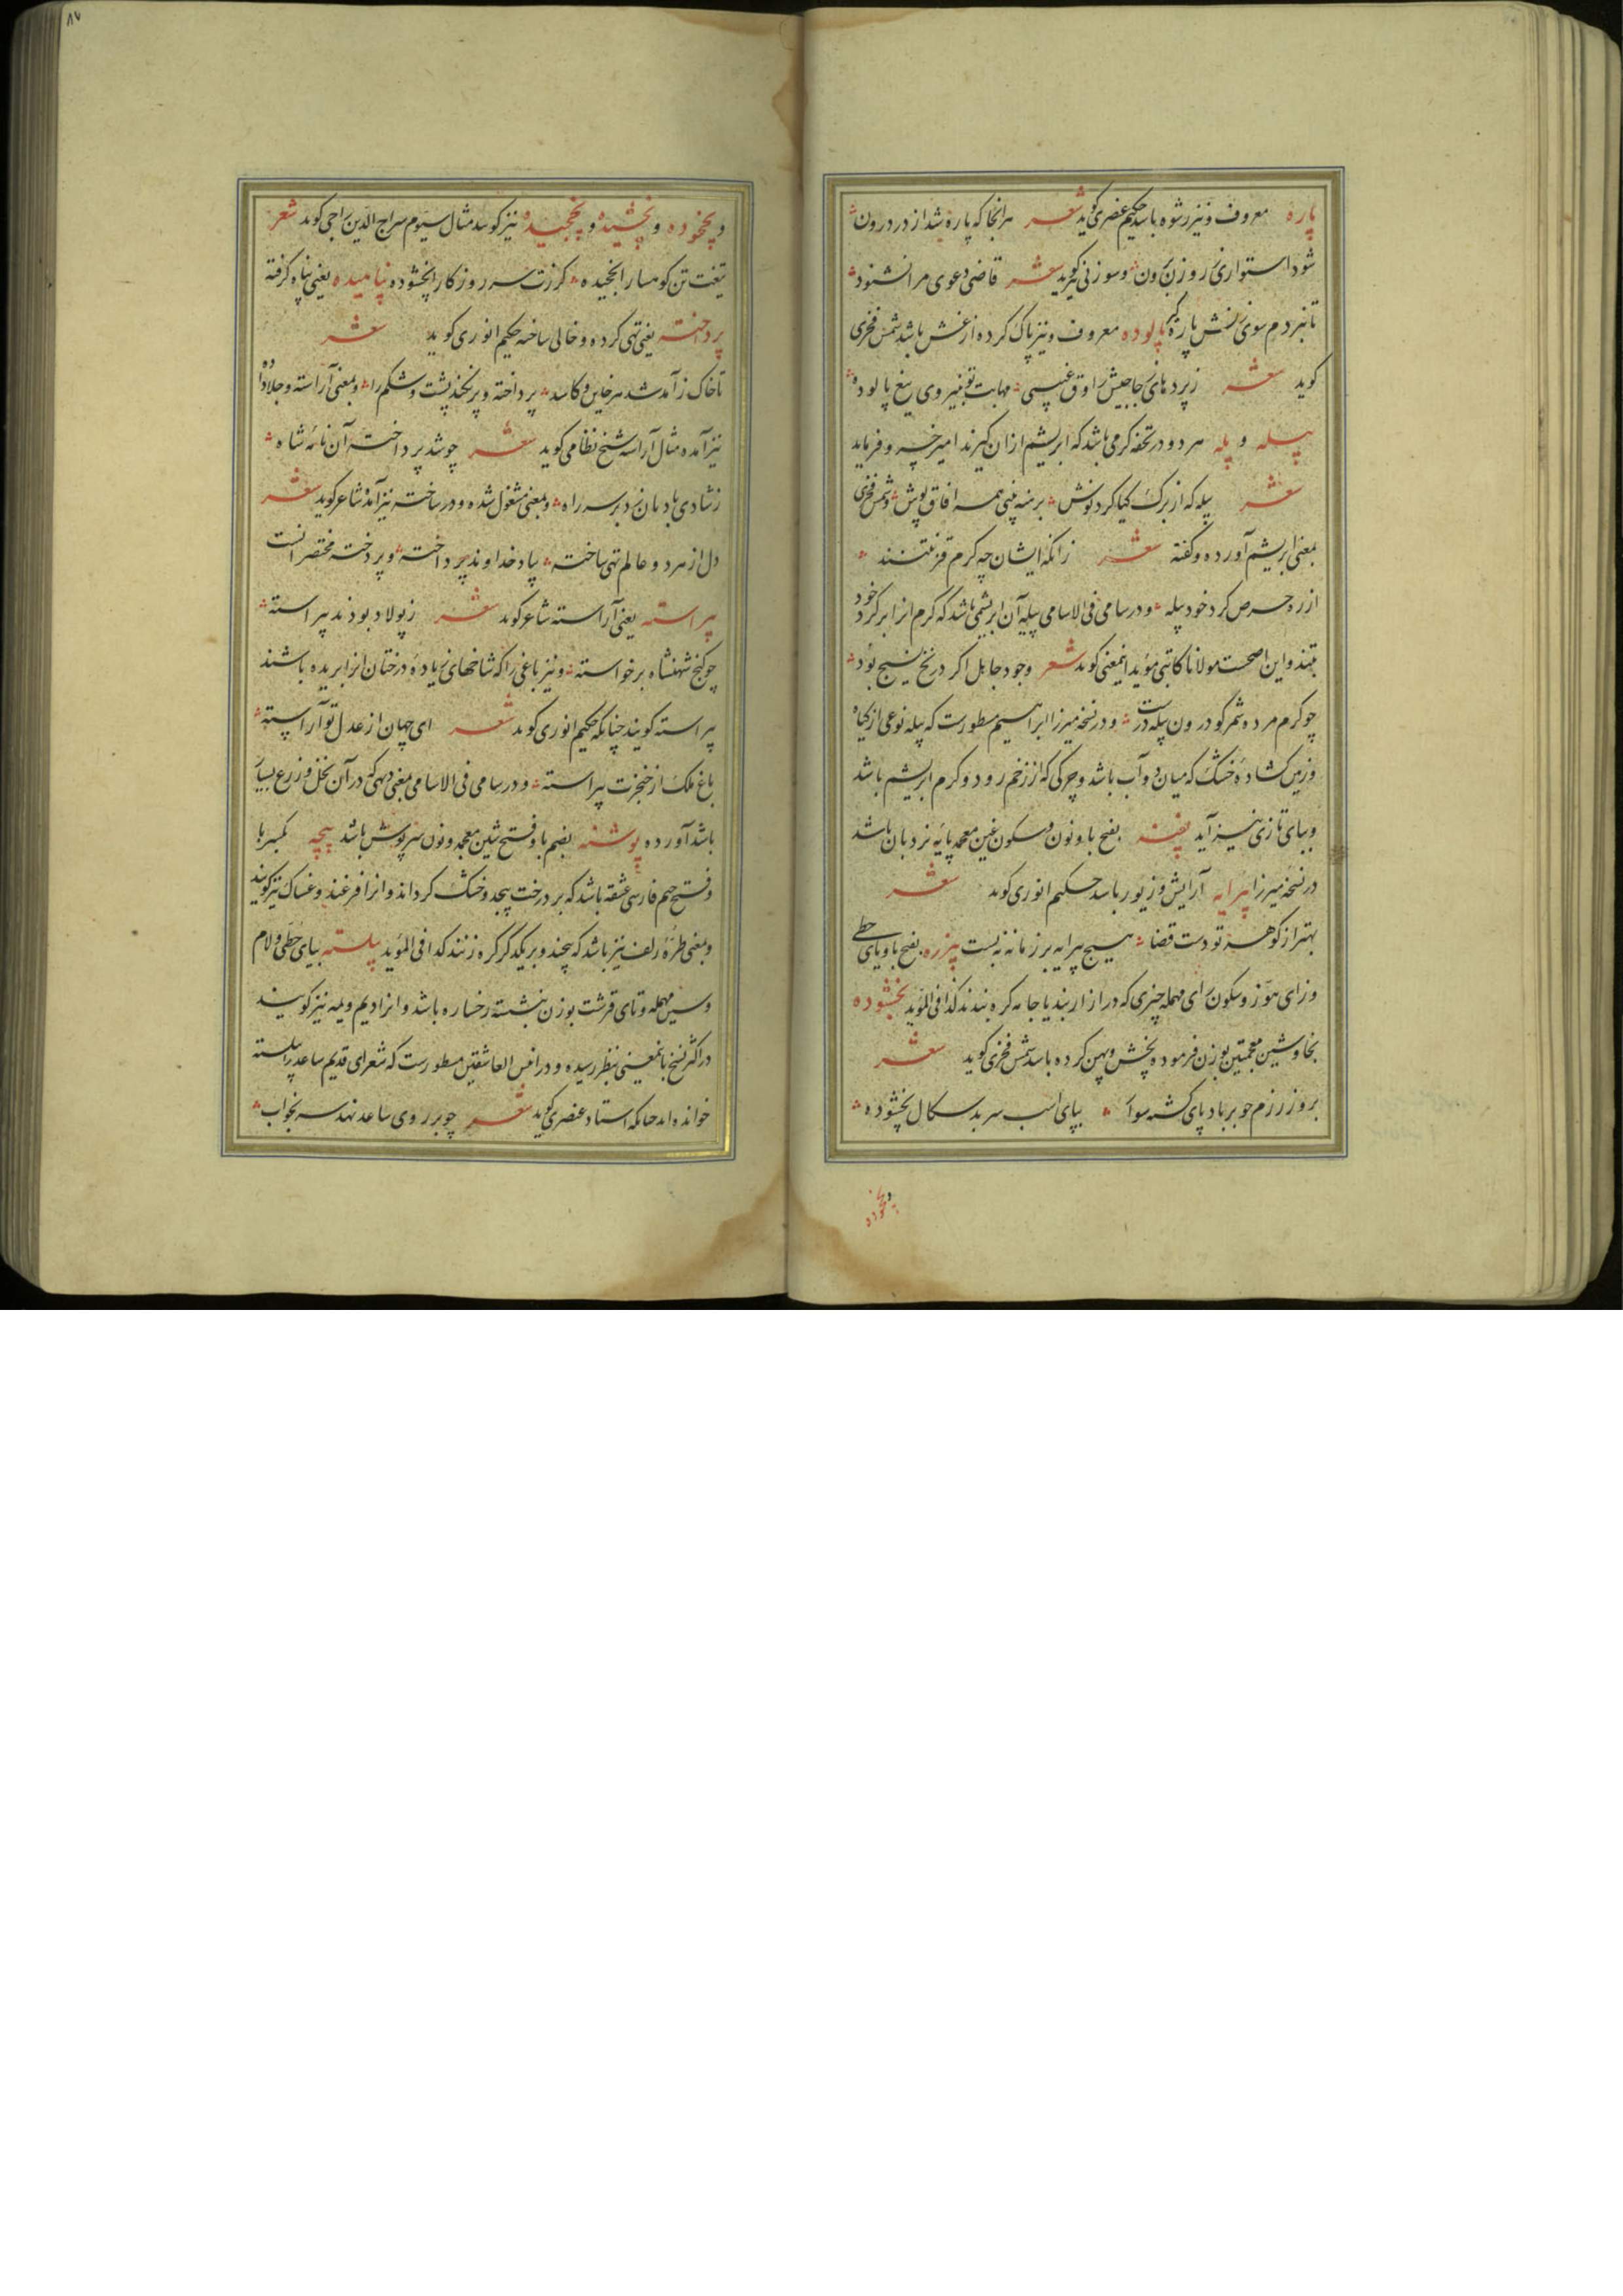 پاره معروف و نیز رشوه باشد حکیم عنصری گوید شعر هرانجا که پاره شد از در درون
شود استواری ز روزن برون و سوزنی گوید شعر قاضی دعوی مرا نشنود
تا نبردم سوی زنش پاره پالوده معروف و نیز پاک کرده از غش باشد شمس فخری
کوید شعر مهابت تو بنیروی تیغ پالوده
پیله و پله هر دو در تحفه کرمی باشد که ابریشم ازان کیرند امیر خسرو فرماید
شعر پیله که از برک کیا کرد نوش برهنه بینی همه افاق پوش و شمس فخری
بمعنی ابریشم آورده و کفته شعر زانکه ایشان چه کرم قز نتنند
از ره حرص کرد خود پیله و در سامی فی الاسامی پیله آن ابریشمی باشد که کرم انرا بر کرد خود
بتند و این اصحست مولانا کاتبی مؤید اینمعنی کوید شعر وجود جاهل اکر در نخ نسیج بود
چو کرم مرده شمر کو درون پیله درست و در نسخه میرزا ابراهیم مسطورست که پیله نوعی از کیاه
و زمین کشاده خشک که میان دو آب باشد و چرکی که از زخم رود و کرم ابریشم باشد
و ببای تازی نیز آید پغنه بفتح با و نون و سکون غین معجمه پایه نردبان باشد
در نسخه میرزا پیرایه آرایش و زیور باشد حکیم انوری کوید شعر
بهتر از کوهر تو دست قضا هیچ پیرایه بر زمانه نبست پیزره بفتح با و یای حطی
و زای هوز و سکون رای مهمله چیزی که در ازار بند یا جامه کره بندند کذا فی المؤید پخشوده
بخا و شین معجمتین بوزن فرموده پخش و پهن کرده باشد شمس فخری کوید شعر
بروز رزم چو بر باد پای کشته سوار بپای اسب سر بدسکال پخشوده
و پخخوده
و پخخوده و پخشیده و پخجیده نیز کویند مثال سیوم سراج الدین راجی کوید شعر
تیغت تن کوهسار ا پخیده کرزت سر روزکار پخشوده پناهیده یعنی پناه کرفته
پرداخته یعنی تهی کرده و خالی ساخته حکیم انوری کوید شعر
پرداخته و پر نکند پشت و شکم را و بمعنی آراسته و جلا داده
نیز آمده مثال آراسته شیخ نظامی کوید شعر چو شد پرداخته آن نامه شاه
ز شادی بادبان زد بر سر راه و بمعنی مشغول شده و در ساخته نیز آمده شاعر کوید شعر
دل از هر دو عالم تهی ساخته بیاد خداوند پرداخته و پردخته مختصر انست
پیراسته یعنی آراسته شاعر کوید شعر ز پولاد بودند پیراسته
چو کنج شهنشاه برخواسته و نیز باغی را که شاخهای زیاده درختان انرا بریده باشند
پیراسته کویند چنانکه حکیم انوری کوید شعر ای جهان از عدل تو آراسته
باغ ملک از خنجرت پیراسته و در سامی فی الاسامی بمعنی دهی که در آن نخل و زرع بسیار
باشد آورده پوشنه بضم با و فتح شین معجمه و نون سرپوش باشد پیچه بکسر با
و فتح جیم فارسی عشقه باشد که بر درخت پیچد و خشک کرداند و انرا فرغند و غساک نیز کویند
و بمعنی طره زلف نیز باشد که پیچند و بر یکدکر کره زنند کذا فی المؤید پیلسته بیای حطی و لام
و سین مهمله و تای قرشت بوزن بنشسته رخساره باشد و انرا دیم و یمه نیز کویند
در اکثر نسخ باینمعنی بنظر رسیده و در انیس العاشقین مسطورست که شعرای قدیم ساعد را پیلسته
خوانده اند چنانکه استاد عنصری کوید شعر چو بر روی ساعد نهد سر بخواب